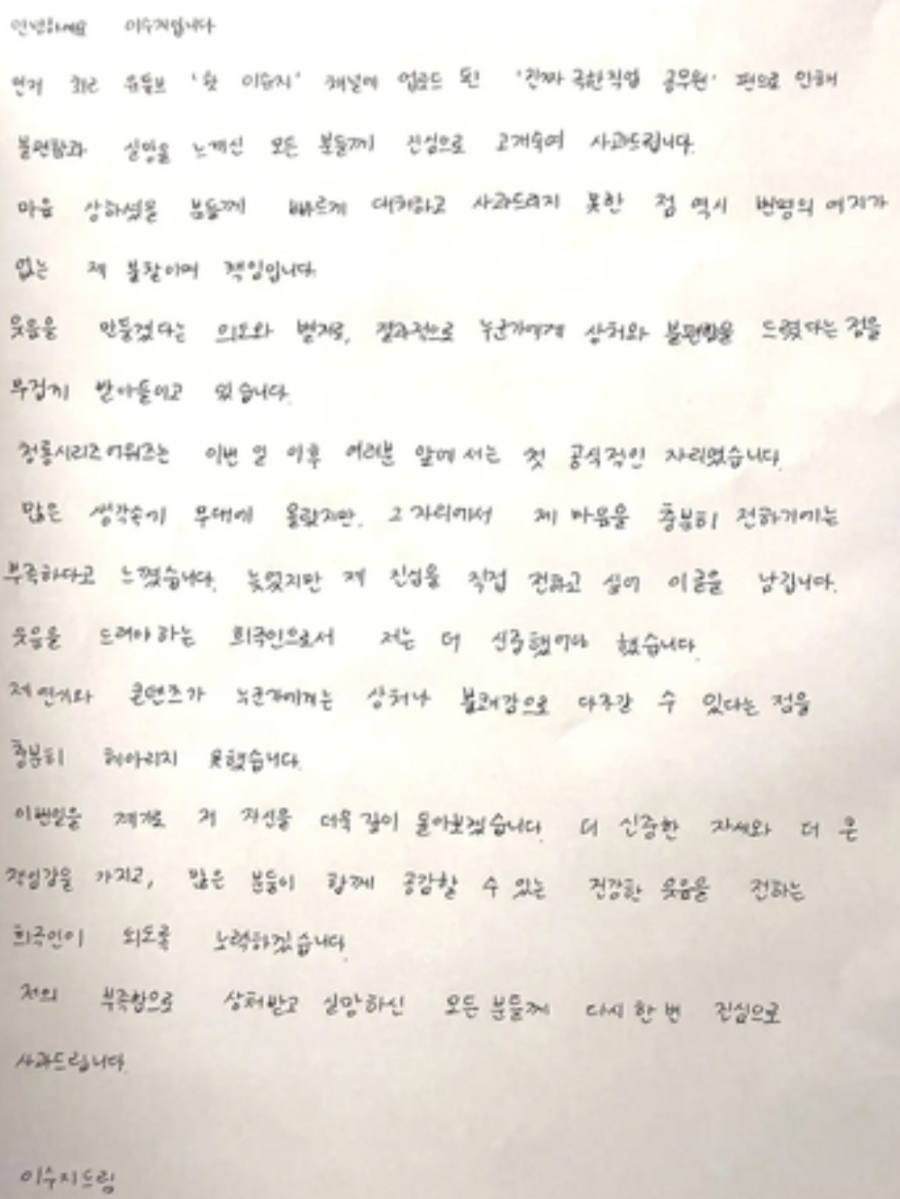 안녕하세요 이수지입니다
먼저 최근 유튜브 '핫 이슈지' 채널에 업로드 된 '진짜 극한직업 공무원' 편으로 인해
불편함과 실망을 느끼신 모든 분들께 진심으로 고개숙여 사과드립니다.
마음 상하셨을 분들께 빠르게 대처하고 사과드리지 못한 점 역시 변명의 여지가
없는 제 불찰이며 책임입니다.
웃음을 만들겠다는 의도와 별개로, 결과적으로 누군가에게 상처와 불편함을 드렸다는 점을
무겁게 받아들이고 있습니다.
청룡시리즈어워즈는 이번 일 이후 여러분 앞에 서는 첫 공식적인 자리였습니다.
많은 생각속에 무대에 올랐지만, 그 자리에서 제 마음을 충분히 전하기에는
부족하다고 느꼈습니다. 늦었지만 제 진심을 직접 전하고 싶어 이 글을 남깁니다.
웃음을 드려야 하는 희극인으로서 저는 더 신중했어야 했습니다.
제 연기와 콘텐츠가 누군가에게는 상처나 불쾌감으로 다가갈 수 있다는 점을
충분히 헤아리지 못했습니다.
이번일을 계기로 제 자신을 더욱 깊이 돌아보겠습니다. 더 신중한 자세와 더 큰
책임감을 가지고, 많은 분들이 함께 공감할 수 있는 건강한 웃음을 전하는
희극인이 되도록 노력하겠습니다.
저의 부족함으로 상처받고 실망하신 모든 분들께 다시 한 번 진심으로
사과드립니다.
이수지드림